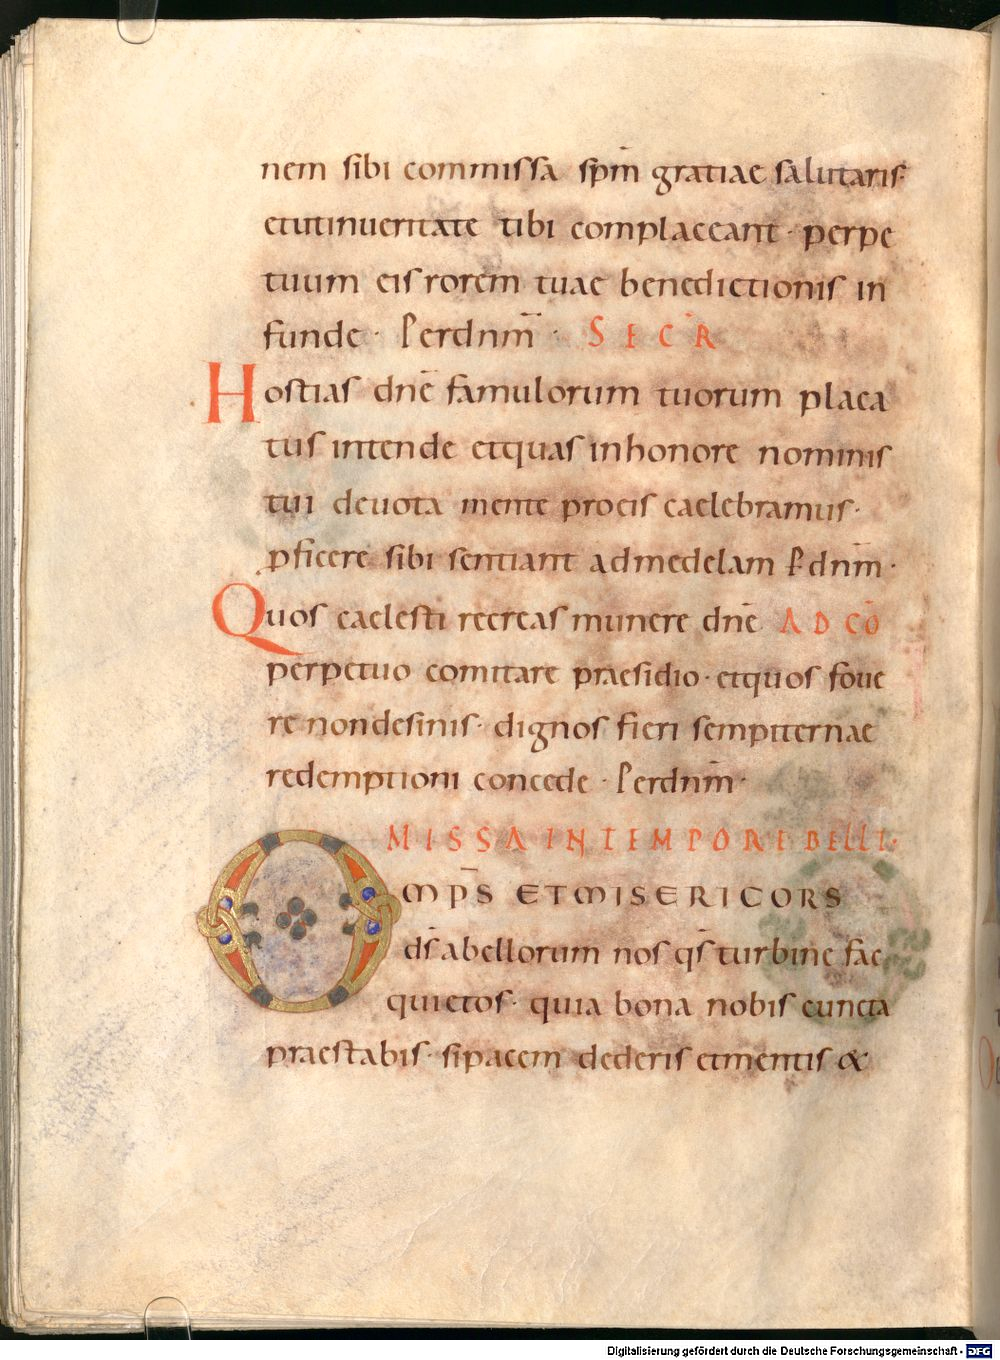 nem sibi commissa sp̄m gratiae salutaris·
etutinueritate tibi complaceant· perpe
tuum eis rorem tuae benedictionis in
funde· Perdnm̄· SECR̄
Hostias dnē famulorum tuorum placa
tus intende etquas inhonore nominis
tui deuota mente procis caelebramus·
pficere sibi sentiant admedelam P dnm̄·
Quos caelesti recreas munere dnē AD CŌ
perpetuo comitare praesidio· etquos foue
re nondesinis· dignos fieri sempiternae
redemptioni concede· Perdnm̄·
MISSA IN TEMPORE BELLI·
OMP̄S ET MISERICORS
ds̄ abellorum nos qs̄ turbine fac
quietos· quia bona nobis cuncta
praestabis· sipacem dederis etmentis &
Digitalisierung gefördert durch die Deutsche Forschungsgemeinschaft - DFG